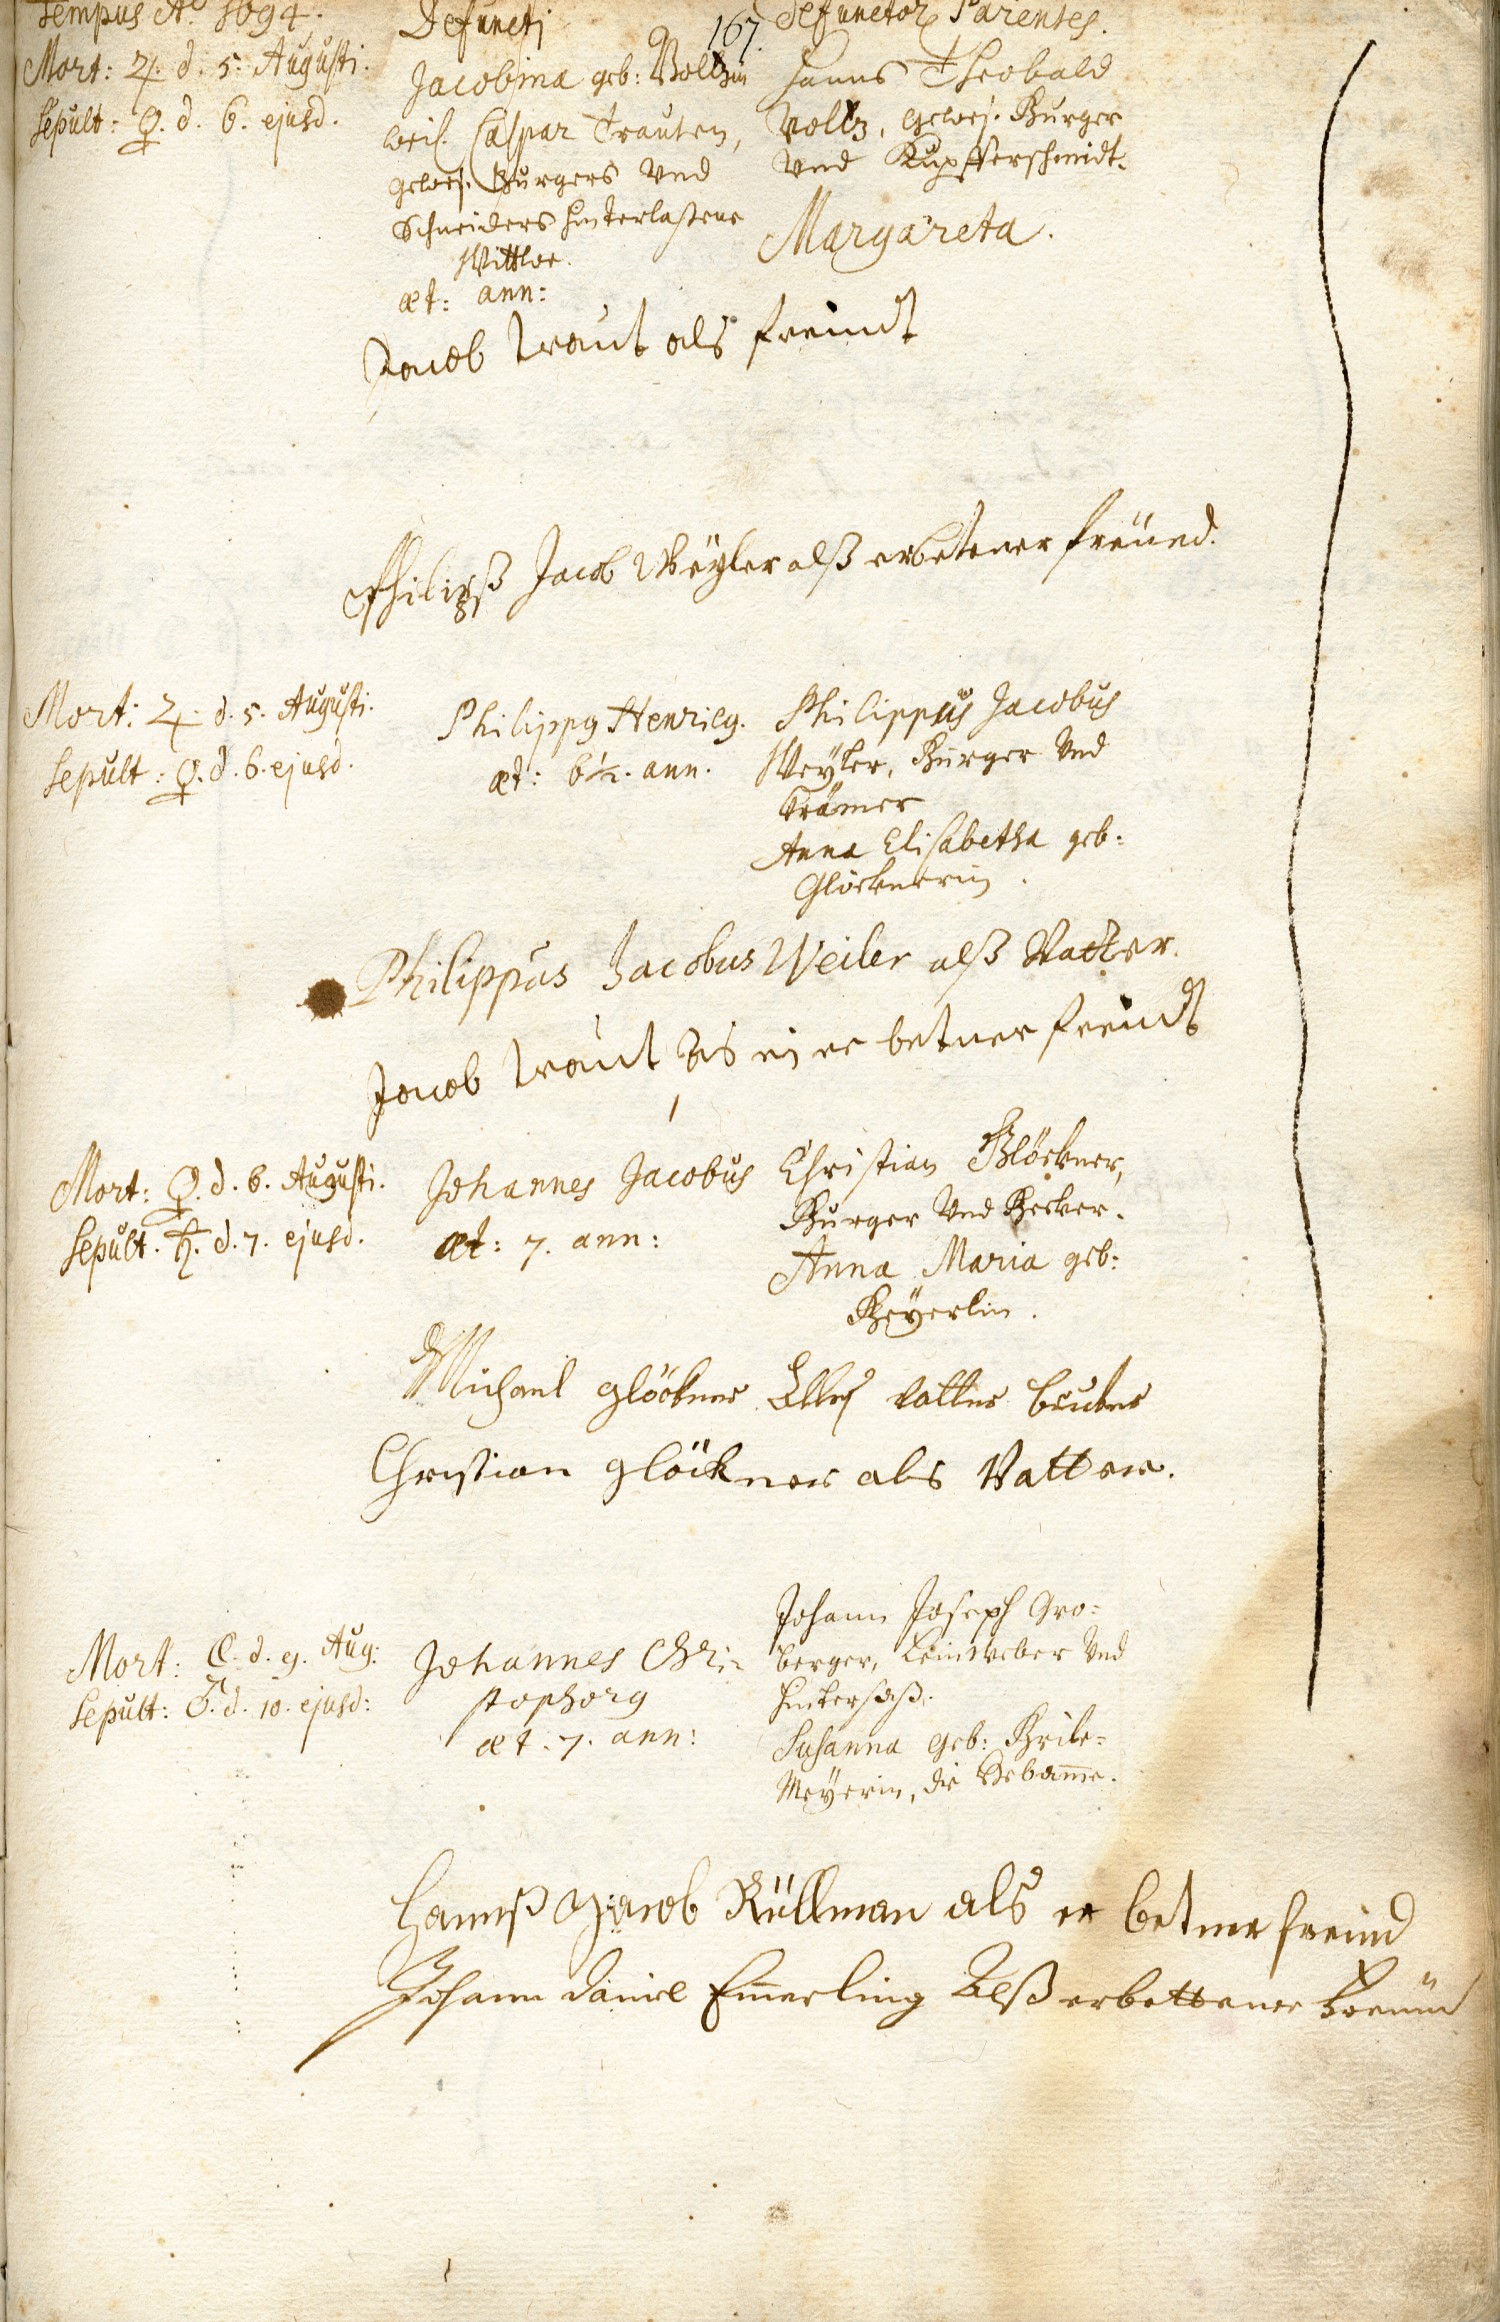 Tempus Aō 1694.
Defuncti
167.
Defunctor. Parentes.
Mort: ♃. d. 5. Augusti.
Sepult: ♀. d. 6. ejusd.
Jacobina geb: Voltzin
weil. Caspar Trauten,
gewes. Burgers Vnd
Schneiders hinterlaßene
Wittwe.
æt: ann:
Hanns Theobald
Voltz, gewes. Burger
Vnd Kupfferschmidt.
Margareta.
Jacob traut als freindt
Philipß Jacob Weyler alß erbetener freünd.
Mort: ♃. d. 5. Augusti.
Sepult: ♀. d. 6. ejusd.
Philippq Henricq.
æt: 6½. ann.
Philippus Jacobus
Weÿler, Burger Vnd
Krämer
Anna Elisabetha geb:
Glöcknerin.
Philippus Jacobus Weiler alß Vatter.
Jacob traut als ein er betner freindt
Mort: ♀. d. 6. Augusti.
Sepult. ♄. d. 7. ejusd.
Johannes Jacobus
æt: 7. ann:
Christian Glöckner,
Burger Vnd Becker.
Anna Maria geb:
Beÿerlin.
Michael glöckner Alß Vatter bruder
Christian glöckner als Vatter.
Mort: ☾. d. 9. Aug:
Sepult: ♂. d. 10. ejusd:
Johannes Chri-
stophorq
æt. 7. ann:
Johann Joseph Gro=
berger, Leinweber Vnd
Hintersaß.
Susanna geb: Brile=
Meÿerin, die Hebam̄e.
Hannß Jacob Rüllman als er betner freind
Johann Daniel Em̄erling Alß erbettener freünd